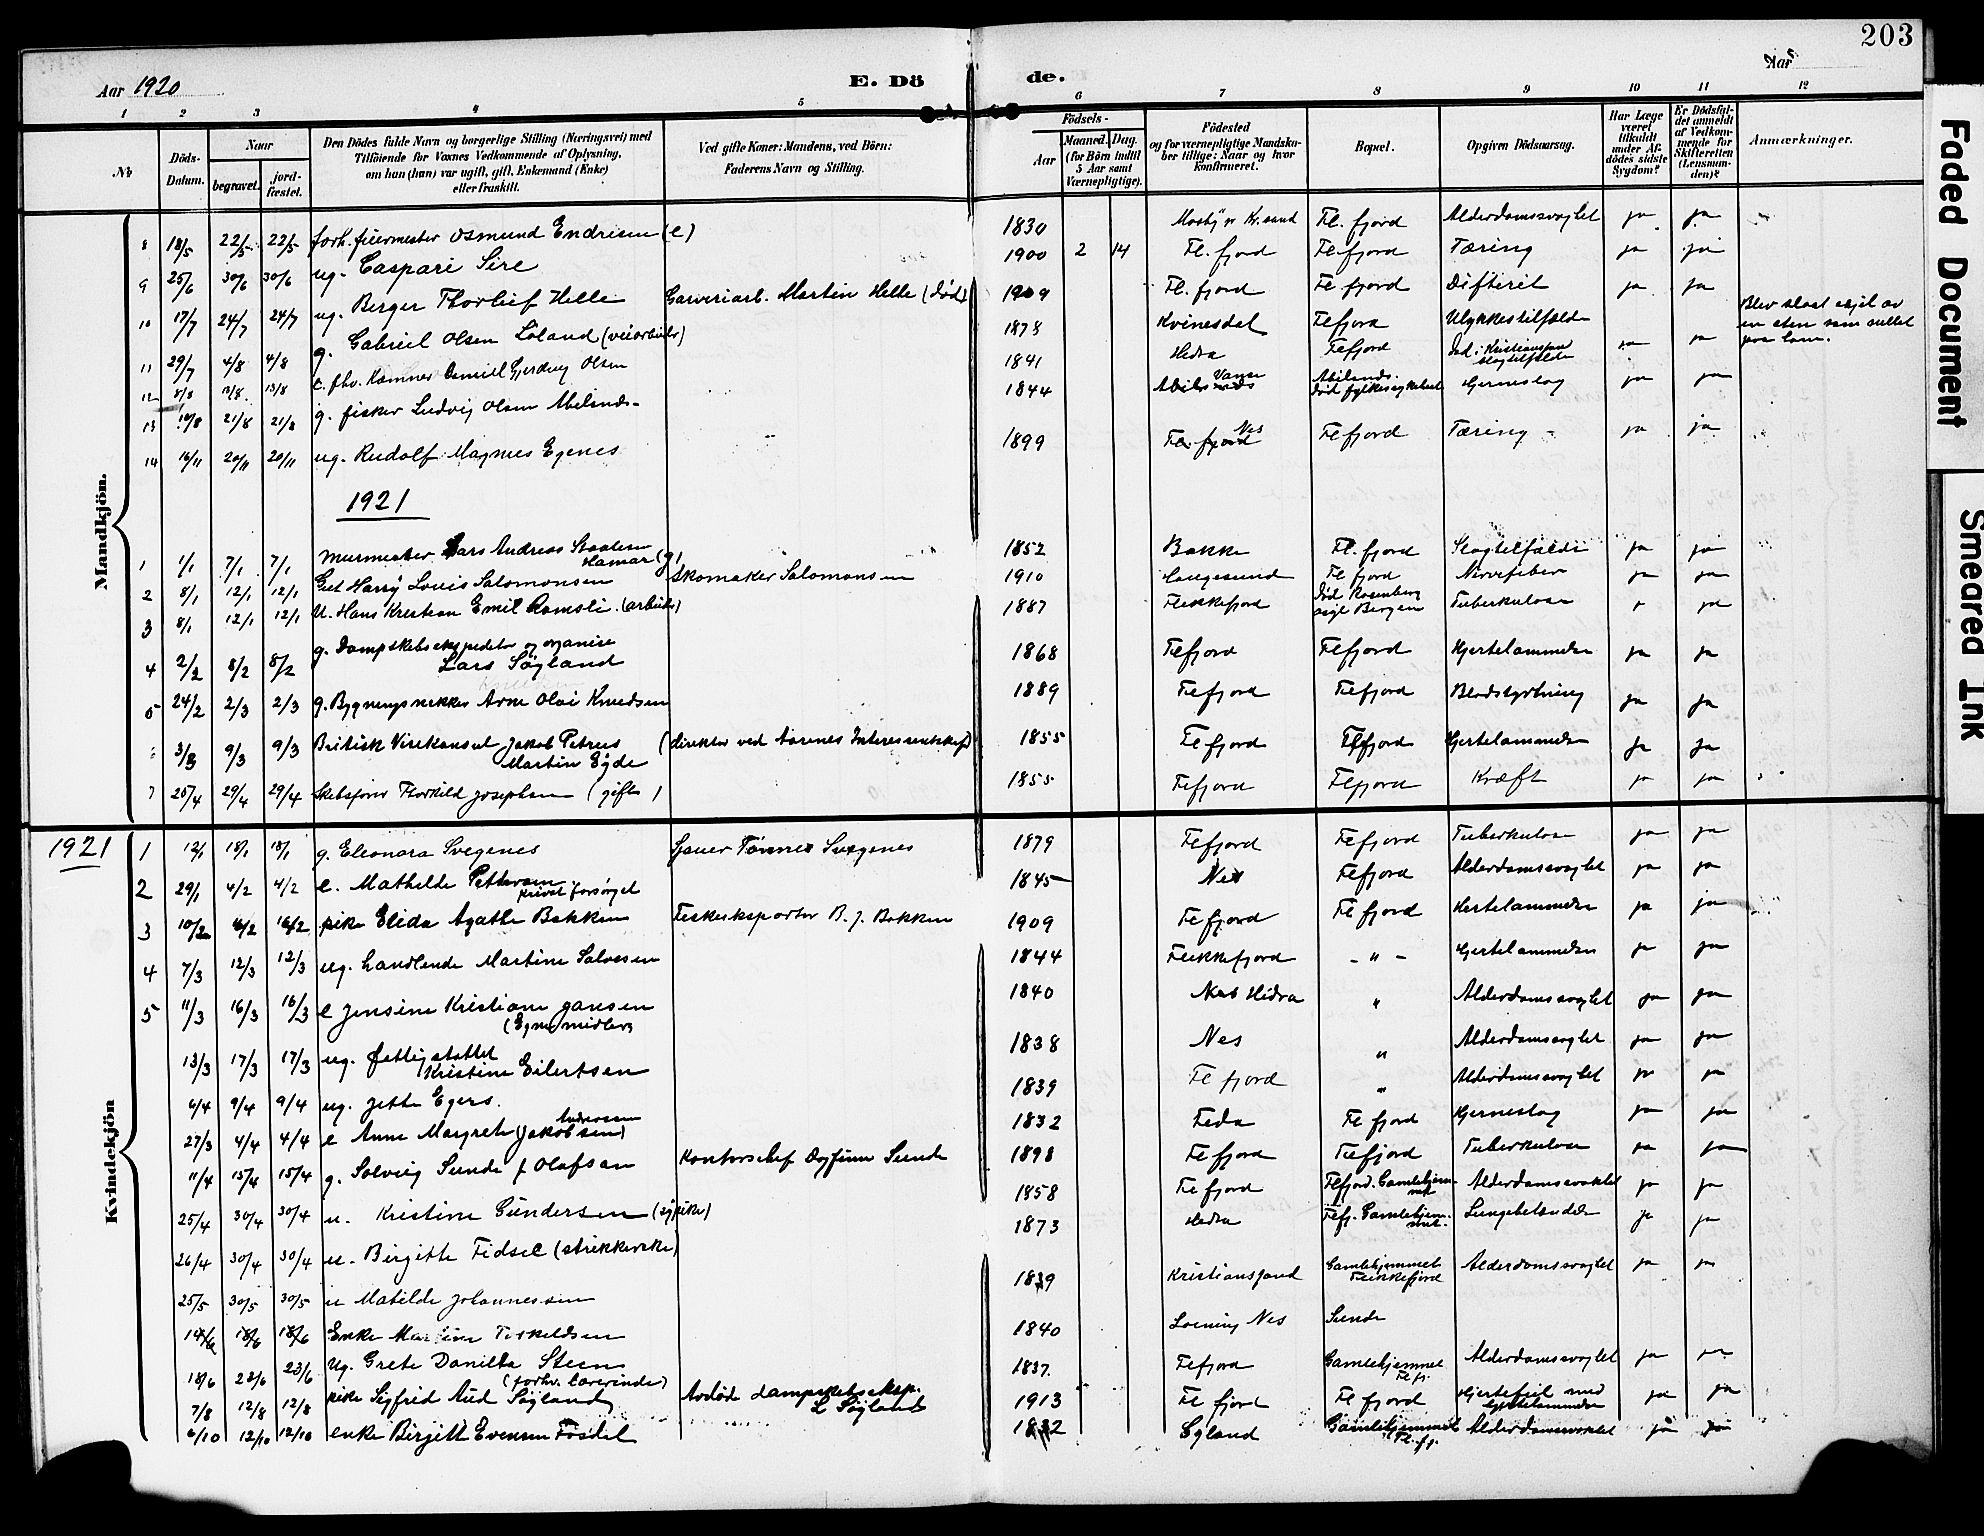 203
Aar 1920
E. Dö de.
Aar
1 2 3 4 5 6 7 8 9 10 11 12
No
Döds-Datum.
Naar
begravet.
jord-fæstet.
Den Dödes fulde Navn og borgerlige Stilling (Næringsvei) med
Tilföiende for Voxnes Vedkommende af Oplysning,
om han (hun) var ugift, gift, Enkemand (Enke)
eller fraskilt.
Ved gifte Koner: Mandens, ved Börn:
Faderens Navn og Stilling.
Födsels-
Aar
Maaned. Dag.
(for Börn indtil
5 Aar samt
Værnepligtige).
Födested
og for værnepligtige Mandska-
ber tillige: Naar og hvor
konfirmeret.
Bopæl.
Opgiven Dödsaarsag.
Har Læge
været
tilkaldt
under Af-
dödes sidste
Sygdom?
Er Dödsfal-
det anmeldt
af Vedkom-
mende for
Skifteretten
(Lensman-
den)?
Anmærkninger.
Mandkjön.
8 18/5 22/5 22/5 forh. fuermester Osmund Endresen (e) 1830 Mosby pr Kr.sand Fl. fjord Alderdomssvaghet ja ja
9 25/6 30/6 30/6 ug. Caspari Sire 1900 2 14 Fl. fjord Fl fjord Tæring ja ja
10 17/7 24/7 24/7 ug. Berger Thorleif Helle Garveriarb. Martin Helle (död) 1909 Fl. fjord Fl fjord Difterit ja ja
11 29/7 4/8 4/8 g. Gabriel Olsen Löland (veiarbeider) 1878 Kvinesdal Flfjord Ulykkestilfælde ja Blev slaat ihjel av
en sten som rullet
paa ham.
12 8/8 13/8 13/8 e. fhv. Kæmner Daniel Gjerding Olsen 1841 Hedra Flfjord Död i Kristianssand
Slagtilfælde ja ja
13 18/8 21/8 21/8 g. fisker Ludvig Olsen Abelsnes 1844 Vanse Abelsnes.
död fylkessykehuset Hjerneslag ja ja
14 16/11 20/11 20/11 ug. Rudolf Magnus Egenes 1899 Fl. fjord Nes Flfjord Tæring ja ja
1921
1 1/1 7/1 7/1 Murmester Lars Andreas Staalesen
Hamar (g) 1852 Bakke Fl. fjord Slagtilfælde ja ja
2 8/1 12/1 12/1 Gut Harry Louis Salomonsen Skomaker Salomonsen 1910 Haugesund Fl fjord Nervefeber ja ja
3 8/1 12/1 12/1 U. Hans Kristian Emil Romsli (arbeider) 1887 Flekkefjord Död Rosenberg
asyl Bergen Tuberkulose ja
4 2/2 8/2 8/2 g. Dampskibsekspeditör og organist
Lars Søyland 1868 Flfjord Flfjord Hjertelammelse ja ja
5 24/2 2/3 2/3 g. Bygningssnekker Arne Olai Knudsen 1889 Flefjord Flefjord Blodstyrtning ja ja
3/3 9/3 9/3 Britisk Visekonsul Jakob Petrus
Martin Eyde (direktør ved Aarenes Interessentskap) 1855 Fl fjord Flfjord Hjertelammelse ja ja
7 25/4 29/4 29/4 Skibsförer Thorkild Josephsen (gift) 1855 Flfjord Flfjord Kræft ja ja
Kvindekjön
1921 1 12/1 18/1 18/1 g. Eleonora Svegenes Sjauer Tønnes Svegenes 1879 Flefjord Flefjord Tuberkulose ja ja
2 29/1 4/2 4/2 e. Mathilde Pettersen
privat forsørget 1845 Nes Flefjord Alderdomssvaghet ja ja
3 10/2 16/2 16/2 pike Elida Agathe Bakken Fiskeeksportør B. J. Bakken 1909 Fl fjord Fl fjord Hjertelammelse ja ja
4 7/3 12/3 12/3 ug. handlende Martine Salvesen 1844 Flekkefjord - " - Hjertelammelse ja ja
5 11/3 16/3 16/3 e Jensine Kristiane Jansen
(Egne midler) 1840 Hidra " Alderdomssvaghet ja ja
13/3 17/3 17/3 ug. fattigstøttet
Kristine Eilertsen 1838 Nes " Alderdomssvaghet ja ja
6/4 9/4 9/4 ug. Jette Egers. 1839 Fl fjord " Alderdomssvaghet ja ja
27/3 4/4 4/4 e Anne Margrete (Jakobsen) Andreassen 1832 Feda Fl fjord Hjerneslag ja ja
11/4 15/4 15/4 g. Solveig Sunde f Olafsen Kontorchef Dagfinn Sunde 1898 Fl fjord Flefjord Tuberkulose ja ja
25/4 30/4 30/4 u. Kristine Gundersen (sypike) 1858 Fl fjord Flfjord. Gamlehjem-
met Alderdomssvaghet ja ja
26/4 30/4 30/4 u. Birgitte Fidsel (strikkerske) 1873 Hedra Flfj. Gamlehjem-
met. Lungebetændelse ja ja
25/5 30/5 30/5 u Matilde Johannessen 1839 Kristianssand Gamlehjemmet
Flekkefjord Alderdomssvaghet ja ja
14/6 18/6 18/6 Enke Martine Torkeldsen 1840 Loening Nes Sunde
18/6 23/6 23/6 Ug. Grete Danilla Steen
(forhv. lærerinde) 1837. Flfjord Gamlehjemmet
Fl.fj. Alderdomssvaghet ja ja
7/8 12/8 12/8 pike Sigfrid Aud Søyland Avdøde dampskibseksp.
L Søyland 1913 Fl fjord Fl fjord Hjertefeil med
hjertelammelse ja ja
6/10 12/10 12/10 enke Birgitt Evensen Fosdal 1832 Egland Gamlehjemmet
Fl.fj. Alderdomssvaghet ja ja
Faded Document
Smeared Ink